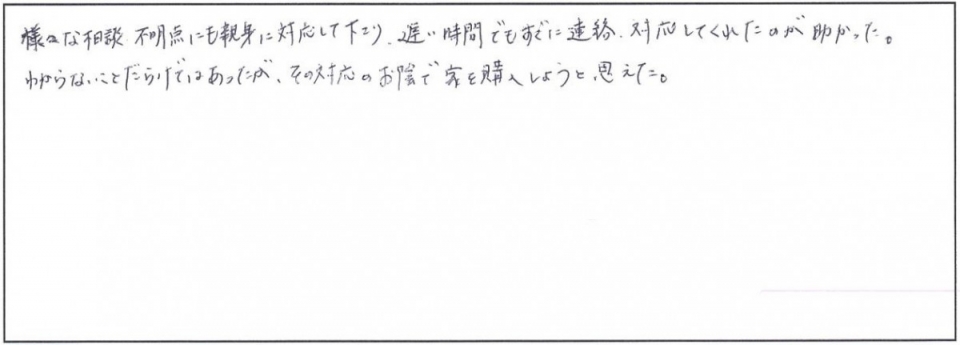 様々な相談 不明点にも親身に対応して下さり、遅い時間でもすぐに連絡、対応してくれたのが助かった。
わからないことだらけではあったが、その対応のお陰で家を購入しようと思えた。